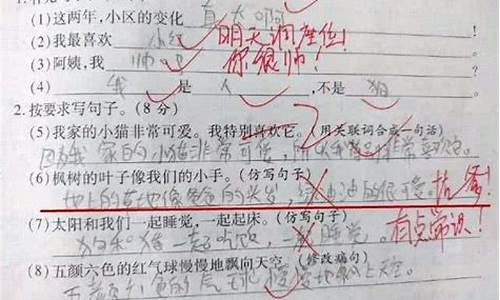 (1)这两年,小区的变化 真大啊
(2)我最喜欢 小红 明天调座位!
(3)阿姨,我 帅吗 你很帅!
(4) 我 是 人 ,不是 狗
2.按要求写句子。(8分)
(5)我家的小猫非常可爱。我特别喜欢它。(用关联词合成一句话)
因为我家的小猫非常可爱,所以我非常喜欢它。
(6)枫树的叶子像我们的小手。(仿写句子)
地上的草地像爸爸的头发,绿油油的很可爱。 抗争!
(7)太阳和我们一起睡觉,一起起床。(仿写句子)
狗和猪一起吃饭,一起睡觉。 有点常识!
(8)五颜六色的红气球慢慢地飘向天空。(修改病句)
五颜六色的气球慢慢地飘上天空。